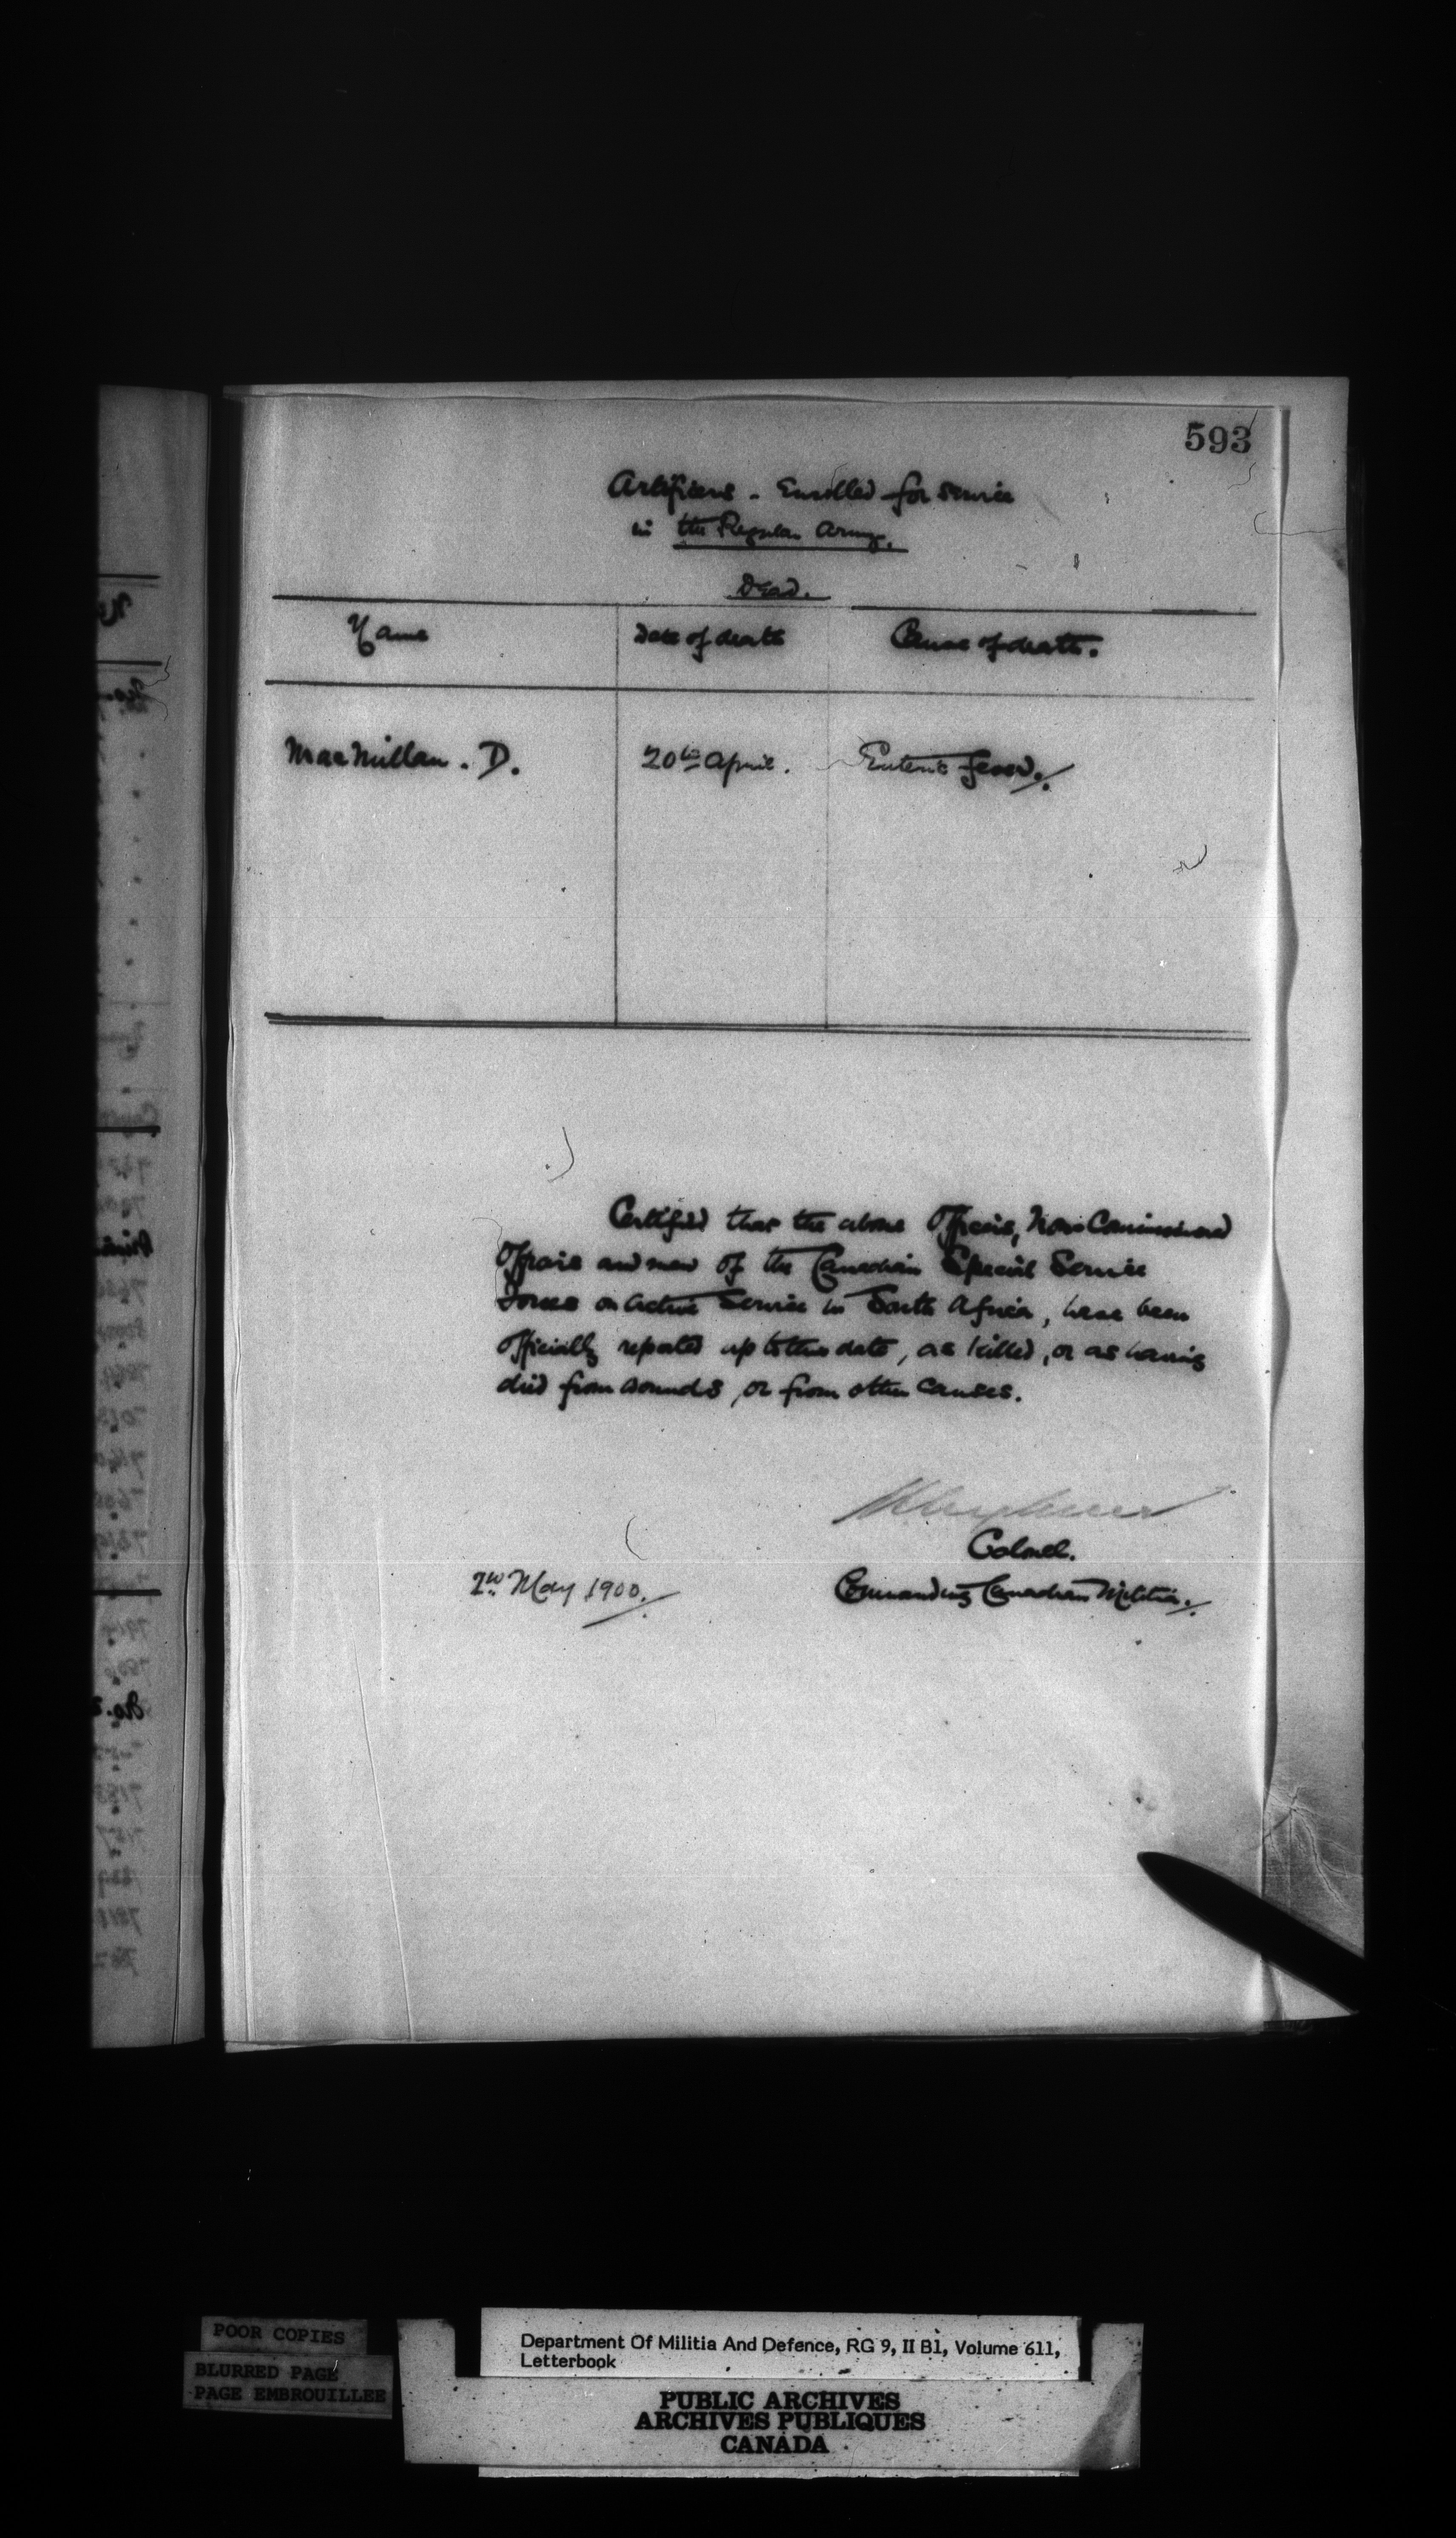 593
Artificers - Enrolled for service
in the Regular Army.
Dead.
Name
Date of death
Cause of death.
MacMillan. D.
20th April.
Enteric fever.
Certified that the above Officers, Non Commissioned
Officers and men of the Canadian Special Service
Forces on active Service in South Africa, have been
officially reported up to this date, as killed, or as having
died from wounds, or from other causes.
Colonel.
2nd May 1900.
Commanding Canadian Militia.
POOR COPIES
BLURRED PAGE
PAGE EMBROUILLEE
Department Of Militia And Defence, RG 9, II B1, Volume 611,
Letterbook
PUBLIC ARCHIVES
ARCHIVES PUBLIQUES
CANADA